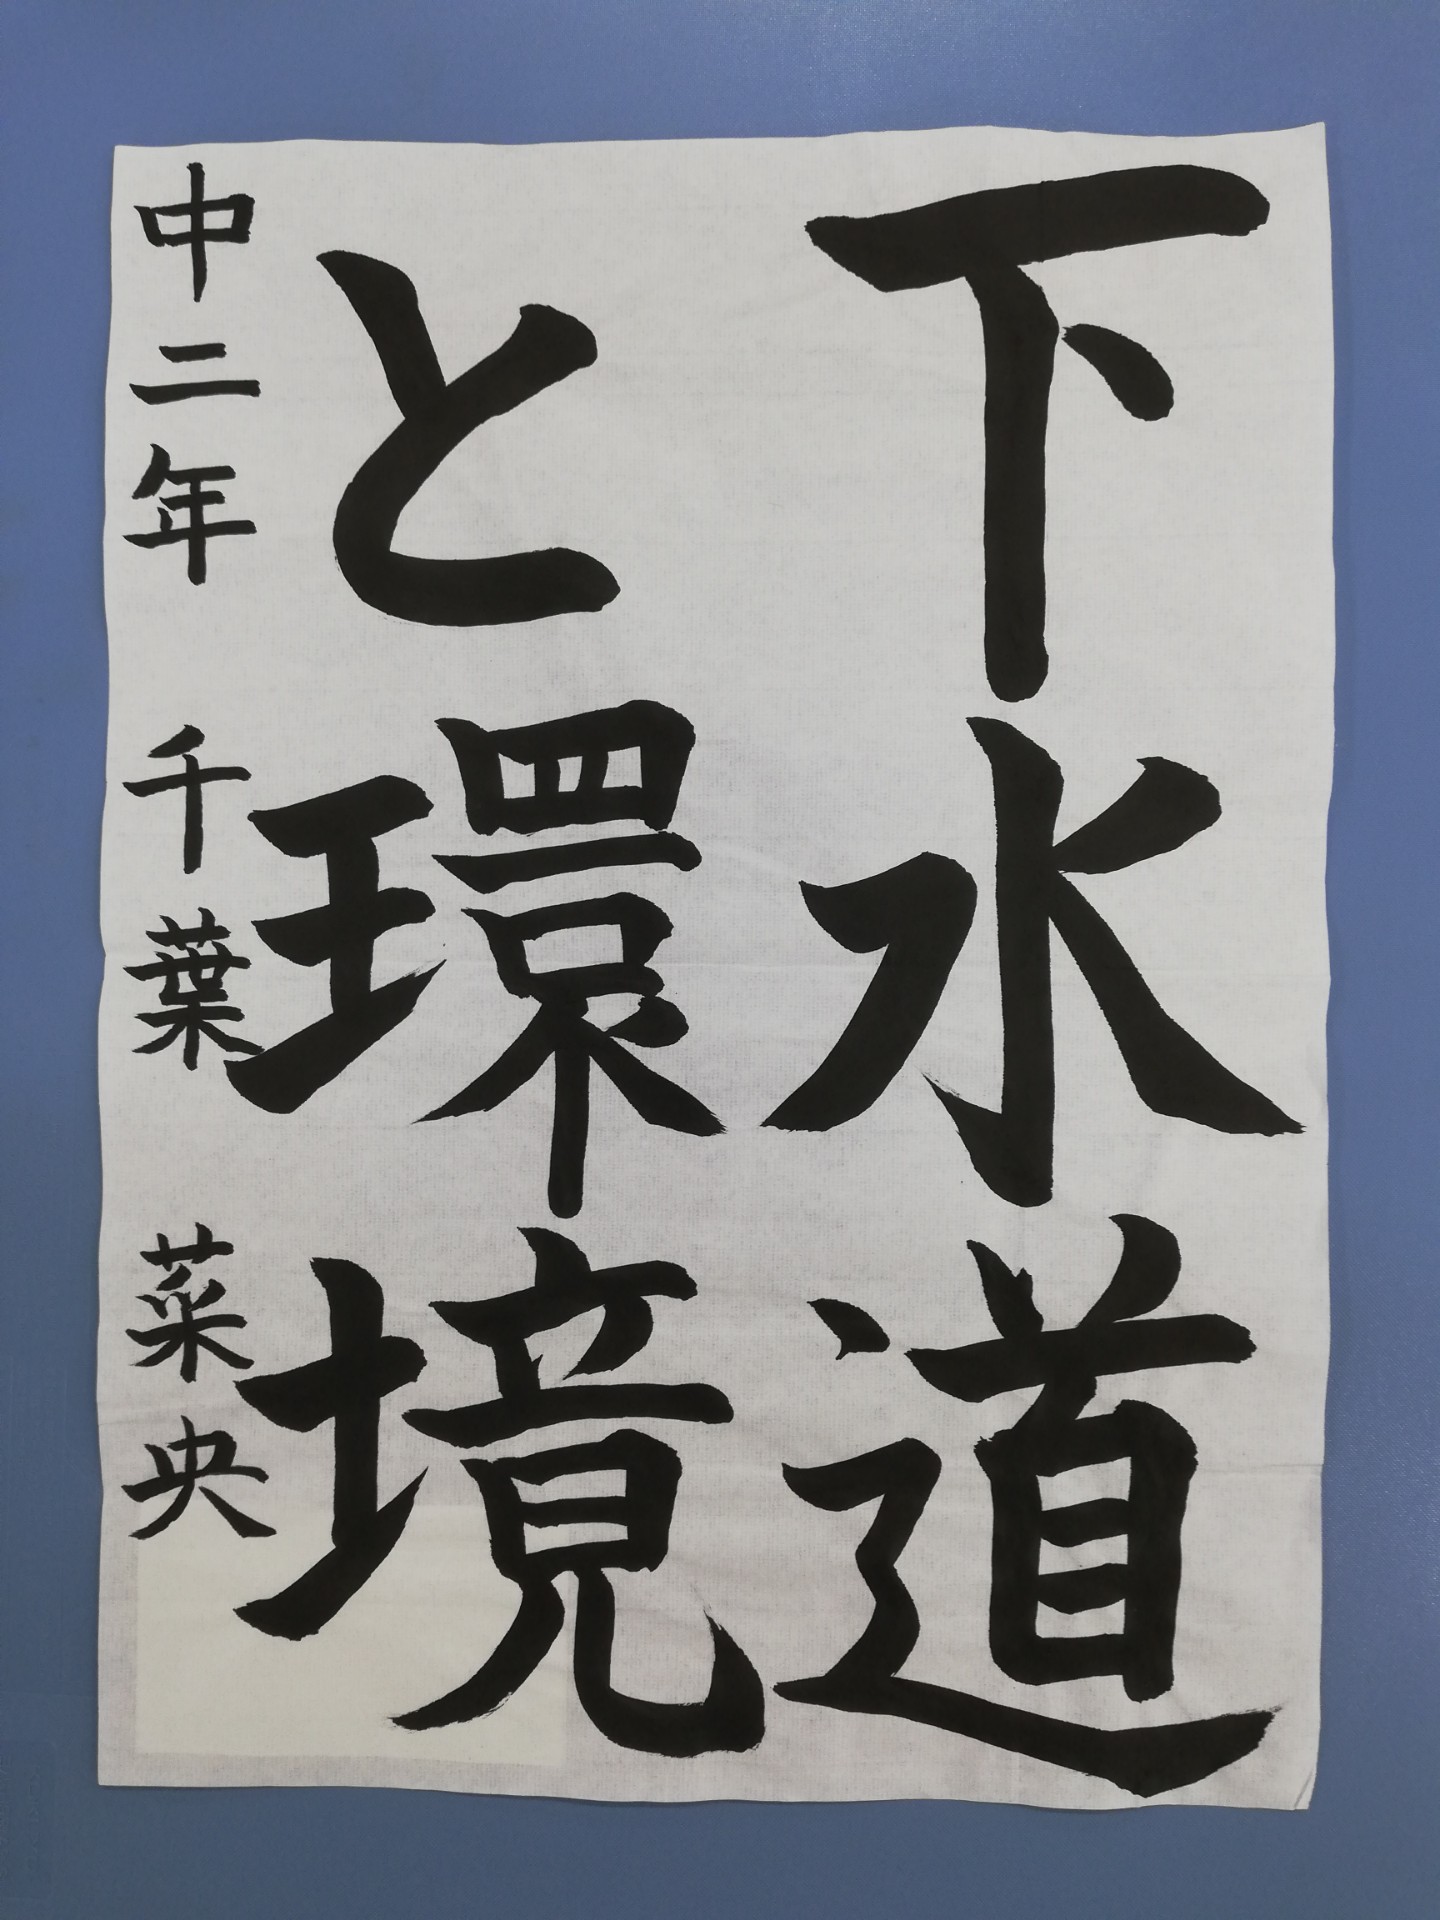 下水道
と環境
中二年 千葉菜央